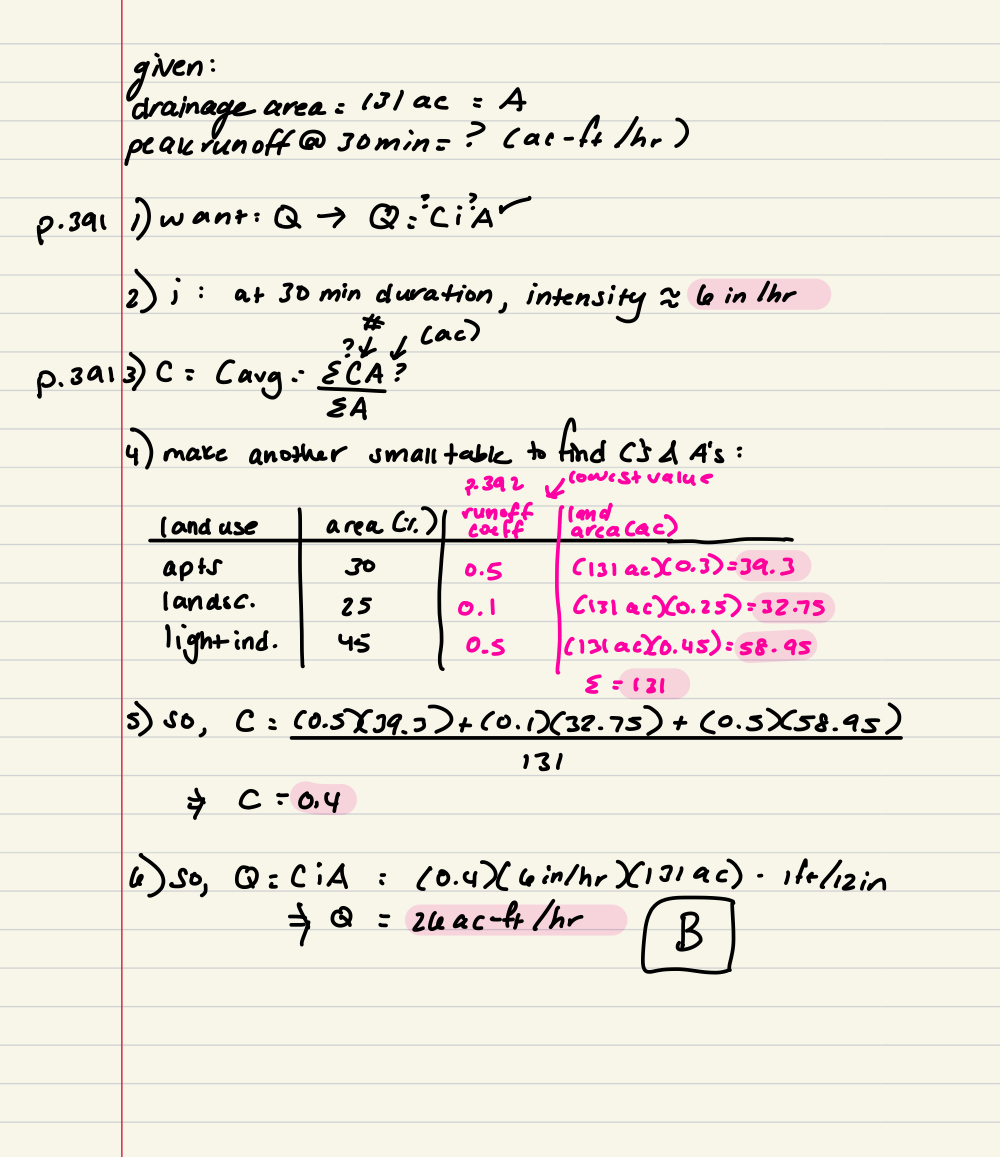 given:
drainage area = 131 ac = A
peak runoff @ 30 min = ? (ac-ft/hr)
p.391 1) want: Q → Q =? C i? A ✓
2) i : at 30 min duration, intensity ≈ 6 in/hr
# (ac)
? ↓ ↙
p.391 3) C = Cavg = ΣCA ?
ΣA
4) make another small table to find C's & A's :
p.392 ↙ lowest value
land use | area (%) | runoff coeff | land area (ac)
apts | 30 | 0.5 | (131 ac)(0.3) = 39.3
landsc. | 25 | 0.1 | (131 ac)(0.25) = 32.75
light ind. | 45 | 0.5 | (131 ac)(0.45) = 58.95
Σ = 131
5) so, C = (0.5)(39.3) + (0.1)(32.75) + (0.5)(58.95)
131
⇒ C = 0.4
6) so, Q = CiA = (0.4)(6 in/hr)(131 ac) · 1ft/12in
⇒ Q = 26 ac-ft/hr B